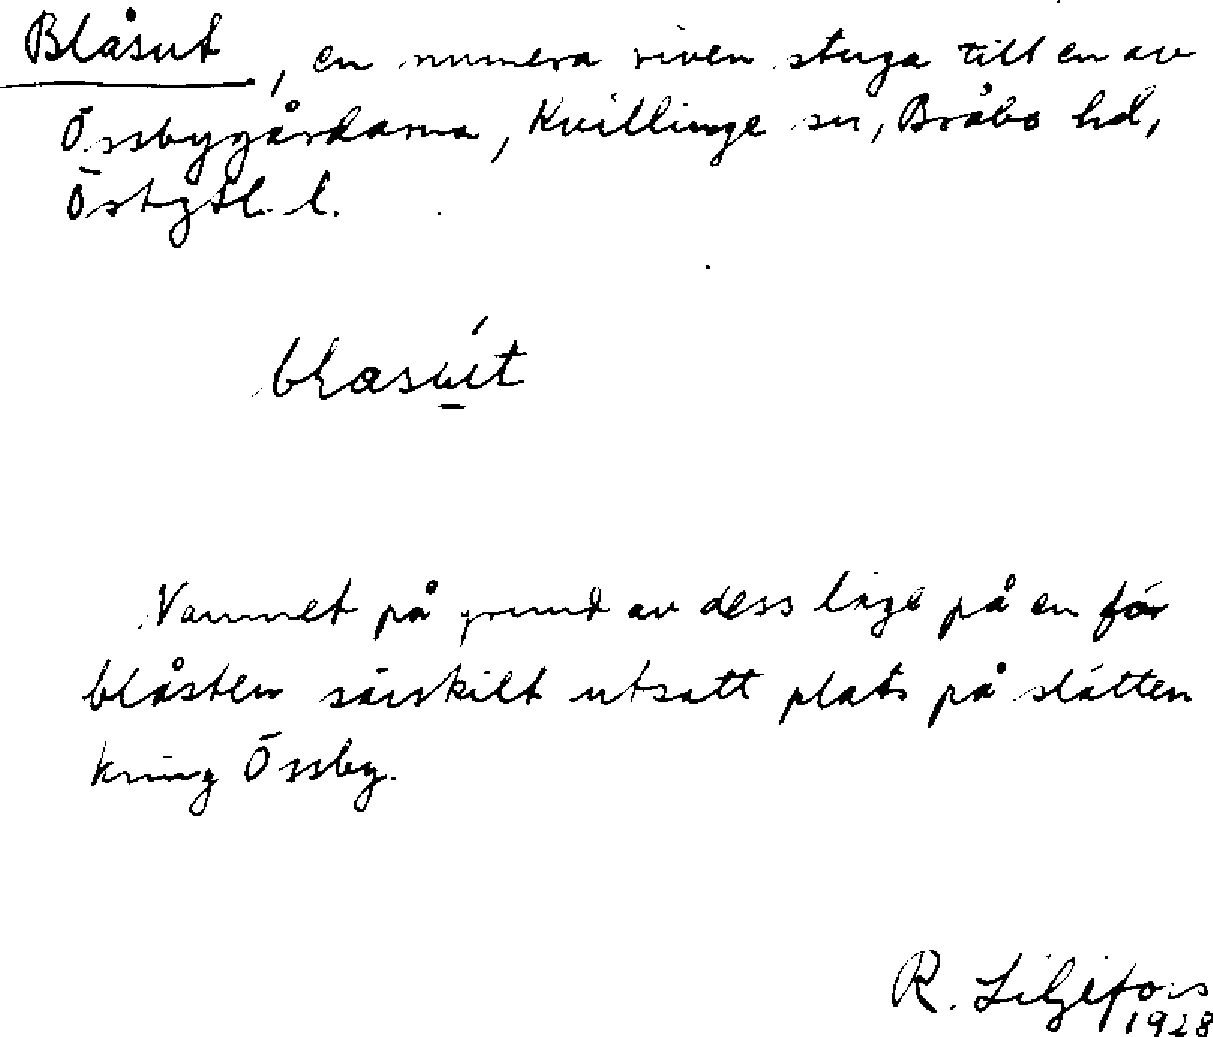 Blåsut, en numera riven stuga till en av
Össbygårdarna, Kvillinge sn, Bråbo hd,
Östgötl. l.
blasút
Namnet på grund av dess läge på en för
blåsten särskilt utsatt plats på slätten
kring Össby.
R. Liljefors
1928